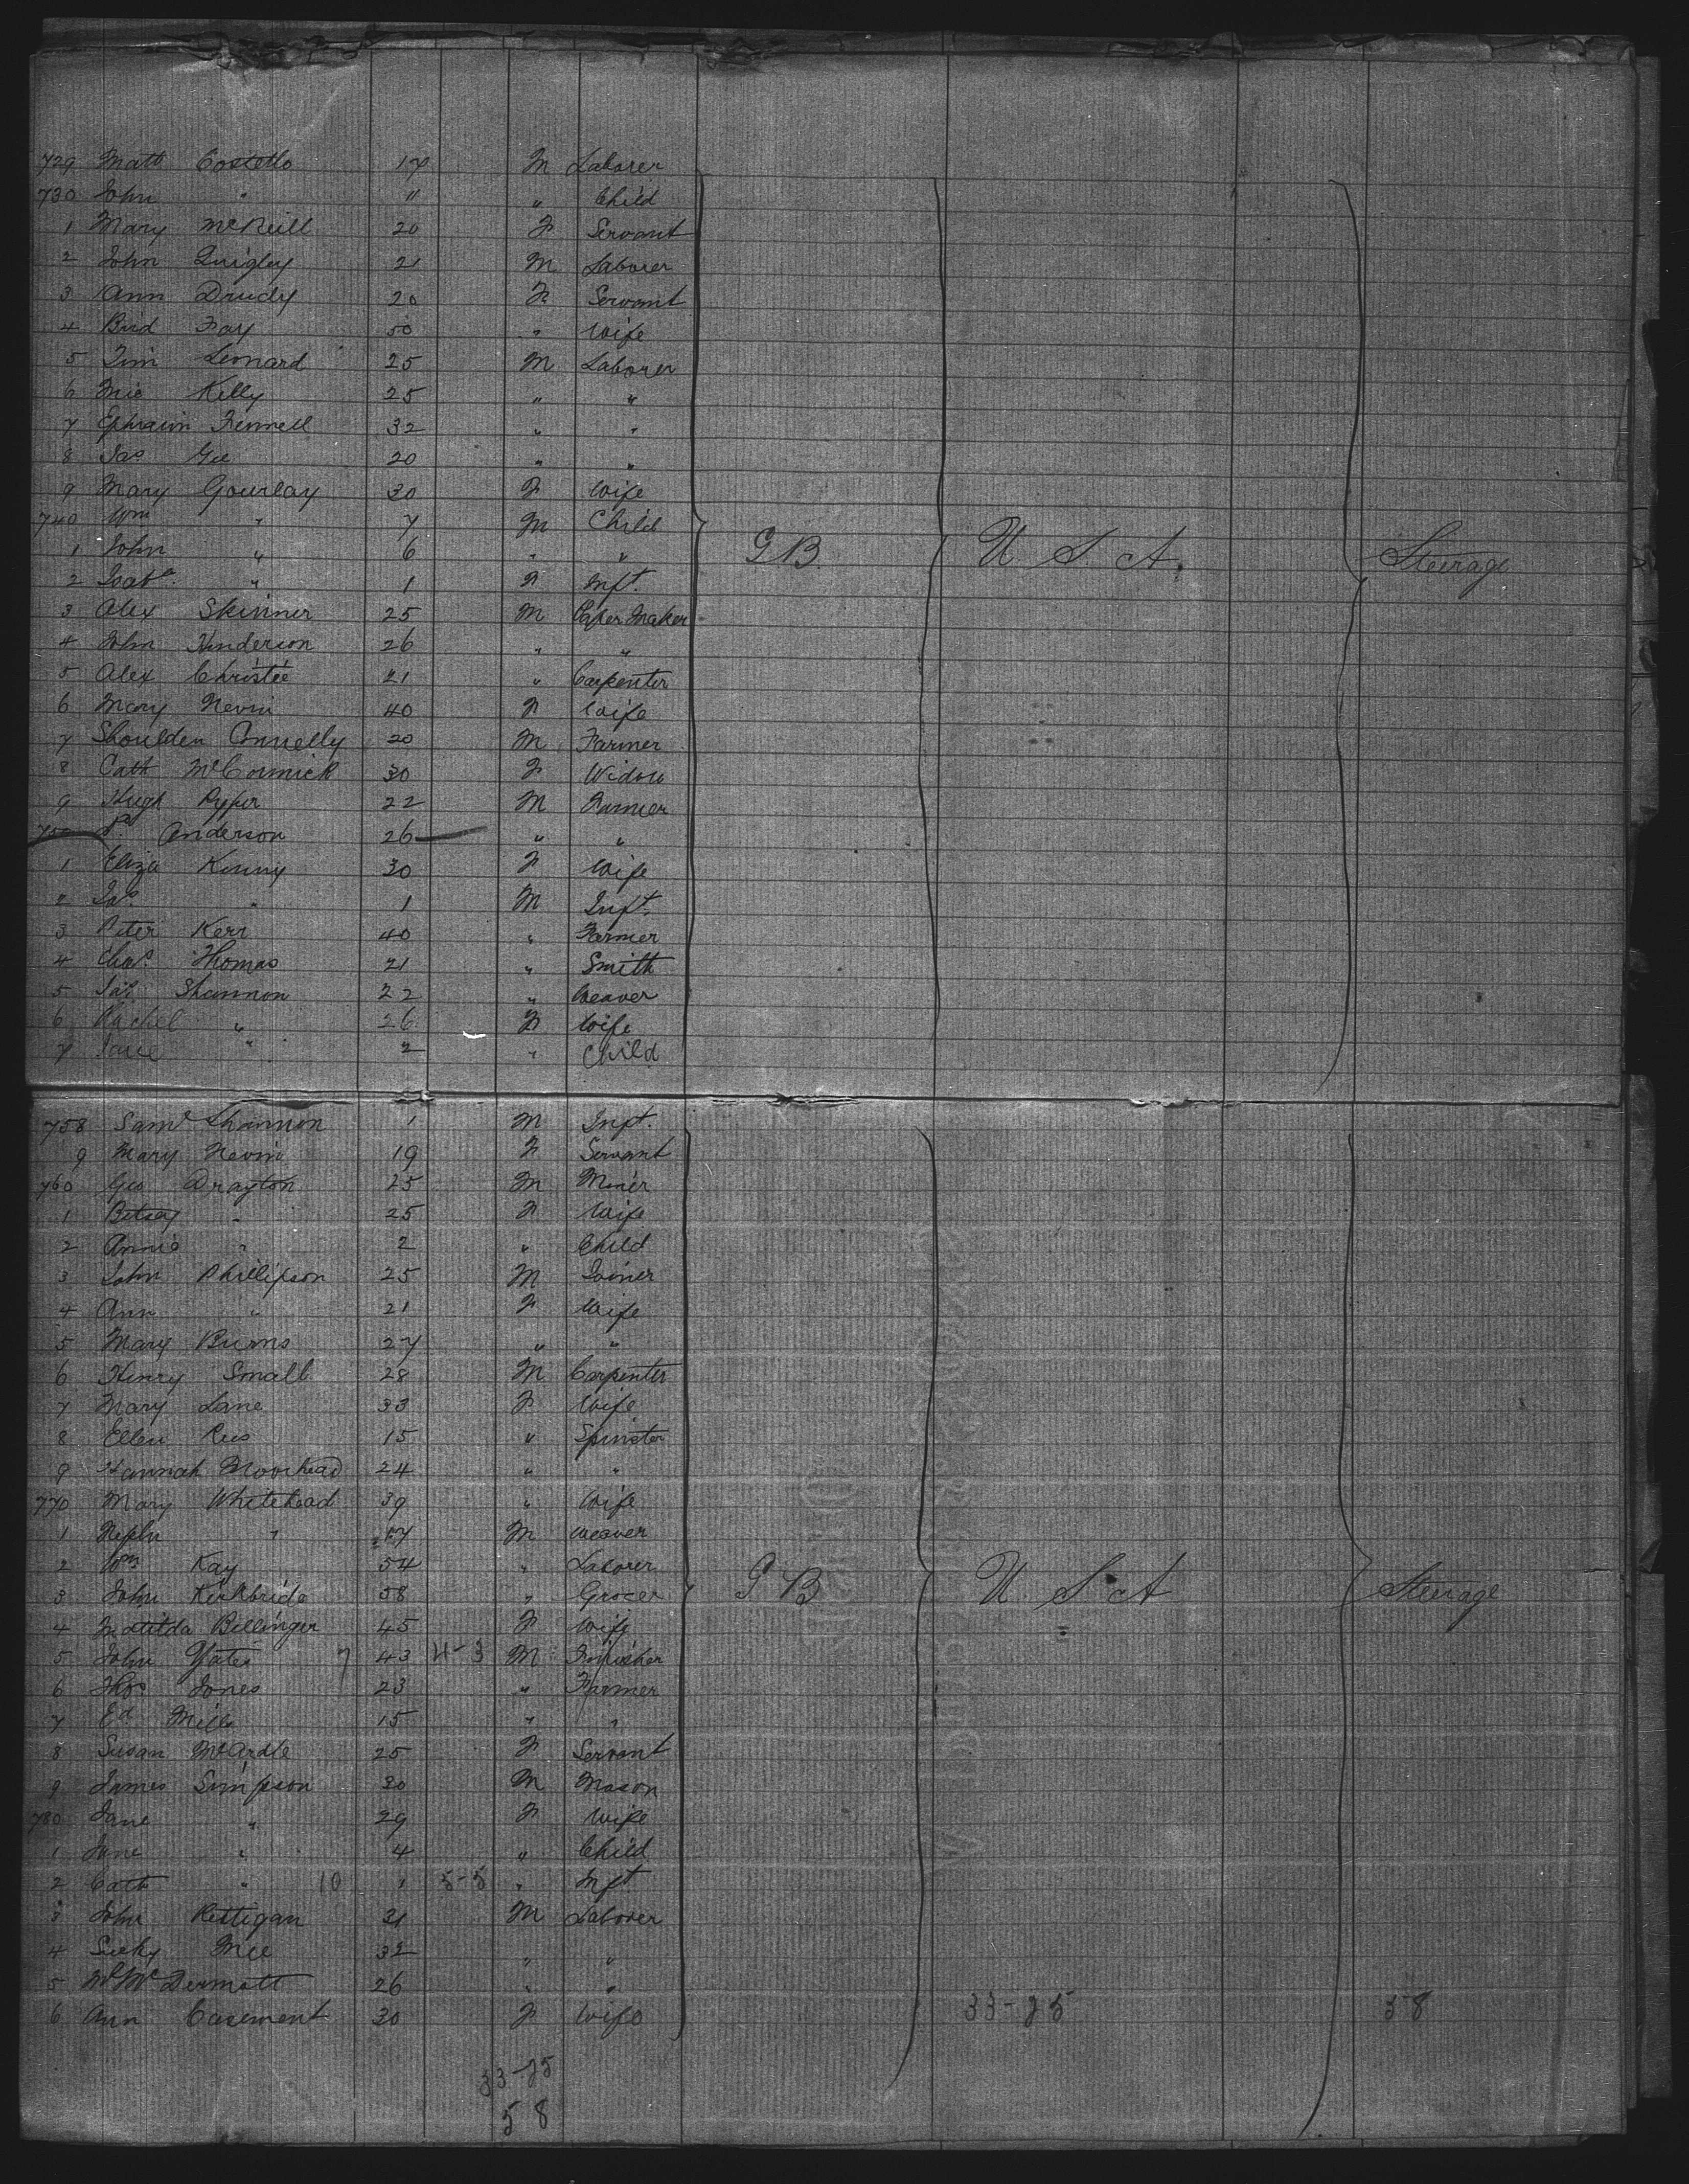 729 Matt Costello 17 M Laborer
730 John " " " Child
1 Mary McNeill 20 F Servant
2 John Quigley 21 M Laborer
3 Ann Drudy 20 F Servant
4 Brid Fay 50 " Wife
5 Tim Leonard 25 M Laborer
6 Mic Kelly 25 " "
7 Ephraim Fennell 32 " "
8 Jas Gee 20 " "
9 Mary Gourlay 30 F Wife
740 Wm " 7 M Child
1 John " 6 " "
2 Isaba " 1 F Inft.
3 Alex Skinner 25 M Paper Maker
4 John Henderson 26 " "
5 Alex Christie 21 " Carpenter
6 Mary Nevin 40 F Wife
7 Shoulden Connelly 20 M Farmer
8 Cath McCormick 30 F Widow
9 Hugh Pyper 22 M Farmer
750 Anderson 26 " "
1 Eliza Kenny 30 F Wife
2 Jas " 1 M Inft.
3 Peter Kerr 40 " Farmer
4 Chas Thomas 21 " Smith
5 Jas Shannon 22 " Weaver
6 Rachel " 26 F Wife
7 Jane " 2 " Child
G B. U. S. A. Steerage
758 Saml Shannon 1 M Inft.
9 Mary Nevin 19 F Servant
760 Geo Drayton 25 M Miner
1 Betsey " 25 F Wife
2 Annie " 2 " Child
3 John Phillipson 25 M Joiner
4 Ann " 21 F Wife
5 Mary Burns 27 " "
6 Henry Small 28 M Carpenter
7 Mary Lane 33 F Wife
8 Ellen Rees 15 " Spinster
9 Hannah Moorhead 24 " "
770 Mary Whitehead 39 " Wife
1 Nephw " 17 M Weaver
2 Wm Kay 54 " Laborer
3 John Kirkbride 58 " Grocer
4 Matilda Bellinger 45 F Wife
5 John Yates 7 43 4-3 M Finisher
6 Thos Jones 23 " Farmer
7 Ed Mills 15 " "
8 Susan McArdle 25 F Servant
9 James Simpson 30 M Mason
780 Jane " 29 F Wife
1 Jane " 4 " Child
2 Cath " 10 1 5-5 " Inft
3 John Rettigan 31 M Laborer
4 Mee 32 " "
5 McDermott 26 " "
6 Ann Casement 30 F Wife
G B U. S. A Steerage
33-25 58
33-25
58